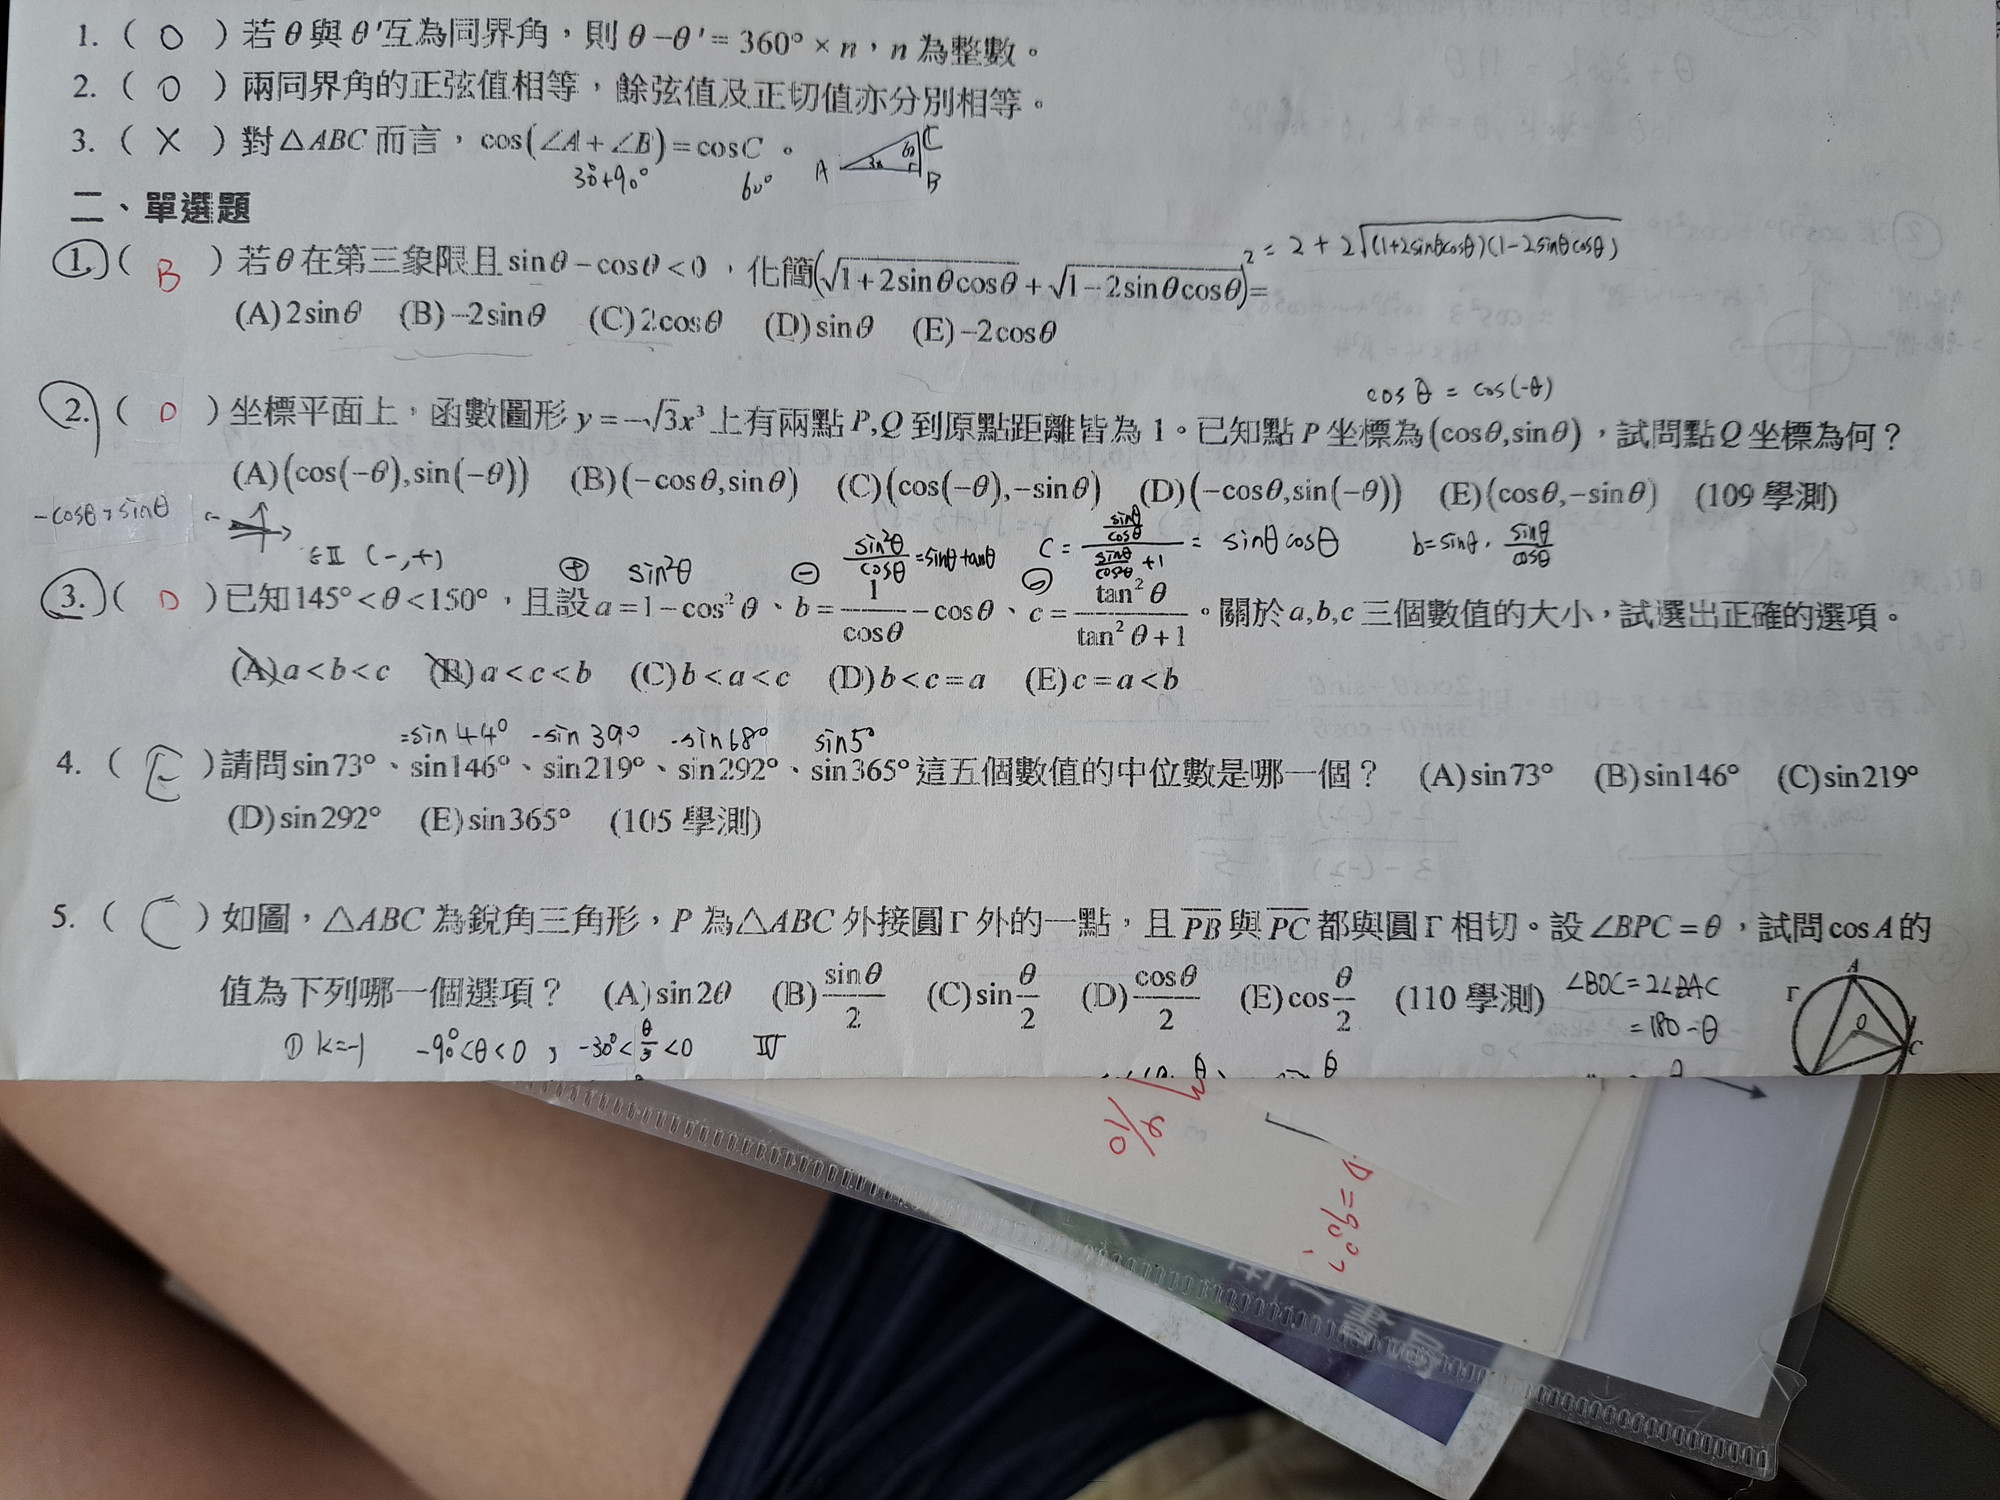 1. ( O ) 若θ與θ'互為同界角，則θ−θ'=360°×n，n為整數。
2. ( O ) 兩同界角的正弦值相等，餘弦值及正切值亦分別相等。
3. ( X ) 對△ABC而言，cos(∠A+∠B)=cosC。
30°+90° 60° A 30 60 C B
二、單選題
1. ( B ) 若θ在第三象限且sinθ−cosθ<0，化簡(√(1+2sinθcosθ)+√(1−2sinθcosθ))²= 2+2√((1+2sinθcosθ)(1-2sinθcosθ))
(A)2sinθ (B)−2sinθ (C)2cosθ (D)sinθ (E)−2cosθ
cosθ = cos(-θ)
2. ( D ) 坐標平面上，函數圖形y=−√3x³上有兩點P,Q到原點距離皆為1。已知點P坐標為(cosθ,sinθ)，試問點Q坐標為何？
(A)(cos(−θ),sin(−θ)) (B)(−cosθ,sinθ) (C)(cos(−θ),−sinθ) (D)(−cosθ,sin(−θ)) (E)(cosθ,−sinθ) (109學測)
-cosθ, sinθ
∈II (-,+) ⊕ sin²θ ⊖ sin²θ/cosθ=sinθtanθ c = (sinθ/cosθ)/(sinθ/cosθ+1) = sinθcosθ b=sinθ·sinθ/cosθ
3. ( D ) 已知145°<θ<150°，且設a=1−cos²θ、b=1/cosθ−cosθ、c=tan²θ/(tan²θ+1)。關於a,b,c三個數值的大小，試選出正確的選項。
(A)a<b<c (B)a<c<b (C)b<a<c (D)b<c=a (E)c=a<b
=sin44° -sin39° -sin68° sin5°
4. ( E ) 請問sin73°、sin146°、sin219°、sin292°、sin365°這五個數值的中位數是哪一個？ (A)sin73° (B)sin146° (C)sin219°
(D)sin292° (E)sin365° (105學測)
5. ( C ) 如圖，△ABC為銳角三角形，P為△ABC外接圓Γ外的一點，且PB與PC都與圓Γ相切。設∠BPC=θ，試問cosA的
值為下列哪一個選項？ (A)sin2θ (B)sinθ/2 (C)sin θ/2 (D)cosθ/2 (E)cos θ/2 (110學測)
∠BOC=2∠BAC
=180-θ
Γ A O C
① k=-1 -90°<θ<0, -30°<θ/3<0 IV